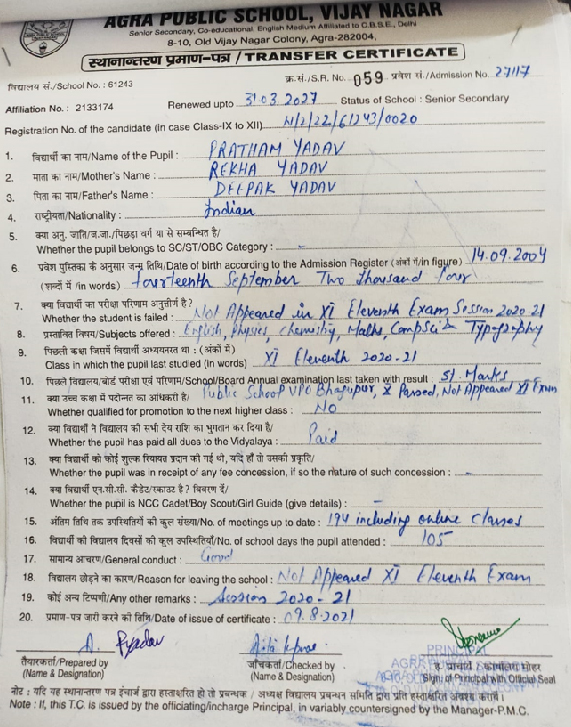 AGRA PUBLIC SCHOOL, VIJAY NAGAR
Senior Secondary, Co-educational, English Medium Affiliated to C.B.S.E., Delhi
8-10, Old Vijay Nagar Colony, Agra-282004,
स्थानान्तरण प्रमाण-पत्र / TRANSFER CERTIFICATE
विद्यालय सं./School No.: 61243 क्र.सं./S.R. No. 059 प्रवेश सं./Admission No. 27117
Affiliation No. : 2133174 Renewed upto 31.03.2027 Status of School : Senior Secondary
Registration No. of the candidate (in case Class-IX to XII) N/1/22/61243/0020
1. विद्यार्थी का नाम/Name of the Pupil : PRATHAM YADAV
2. माता का नाम/Mother's Name : REKHA YADAV
3. पिता का नाम/Father's Name : DEEPAK YADAV
4. राष्ट्रीयता/Nationality : Indian
5. क्या अनु. जाति/ज.जा./पिछड़ा वर्ग या से सम्बन्धित है/
Whether the pupil belongs to SC/ST/OBC Category : -
6. प्रवेश पुस्तिका के अनुसार जन्म तिथि/Date of birth according to the Admission Register (अंकों में/in figure) 14.09.2004
(शब्दों में /in words) fourteenth September Two thousand four
7. क्या विद्यार्थी का परीक्षा परिणाम अनुत्तीर्ण है?
Whether the student is failed : Not Appeared in XI Eleventh Exam Session 2020-21
8. प्रस्तावित विषय/Subjects offered : English, Physics, Chemistry, Maths, CompSci Typography
9. पिछली कक्षा जिसमें विद्यार्थी अध्ययनरत था : (अंकों में)
Class in which the pupil last studied (in words) XI Eleventh 2020-21
10. पिछले विद्यालय/बोर्ड परीक्षा एवं परिणाम/School/Board Annual examination last taken with result : St. Marks
11. क्या उच्च कक्षा में परोन्नत का अधिकारी है/ Public School VPO Bhagupur, X Passed, Not Appeared XI Exam
Whether qualified for promotion to the next higher class : No
12. क्या विद्यार्थी ने विद्यालय की सभी देय राशि का भुगतान कर दिया है/
Whether the pupil has paid all dues to the Vidyalaya : Paid
13. क्या विद्यार्थी को कोई शुल्क रियायत प्रदान की गई थी, यदि हाँ तो उसकी प्रकृति/
Whether the pupil was in receipt of any fee concession, if so the nature of such concession : -
14. क्या विद्यार्थी एन.सी.सी. कैडेट/स्काउट है? विवरण दें/
Whether the pupil is NCC Cadet/Boy Scout/Girl Guide (give details) : -
15. अंतिम तिथि तक उपस्थितियों की कुल संख्या/No. of meetings up to date : 194 including online classes
16. विद्यार्थी की विद्यालय दिवसों की कुल उपस्थितियाँ/No. of school days the pupil attended : 105
17. सामान्य आचरण/General conduct : Good
18. विद्यालय छोड़ने का कारण/Reason for leaving the school : Not Appeared XI Eleventh Exam
19. कोई अन्य टिप्पणी/Any other remarks : Session 2020-21
20. प्रमाण-पत्र जारी करने की तिथि/Date of issue of certificate : 09.8.2021
तैयारकर्ता/Prepared by जाँचकर्ता/Checked by ह. प्राचार्य कार्यालय मोहर
(Name & Designation) (Name & Designation) Sign of Principal with Official Seal
PRINCIPAL
नोट : यदि यह स्थानान्तरण पत्र इंचार्ज द्वारा हस्ताक्षरित हो तो प्रबन्धक / अध्यक्ष विद्यालय प्रबन्धन समिति द्वारा प्रति हस्ताक्षरित अवश्य करायें।
Note : If, this T.C. is issued by the officiating/incharge Principal, in variably countersigned by the Manager-P.M.C.